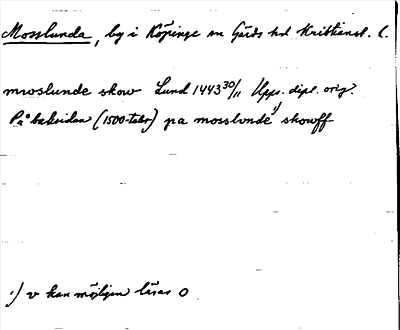 Mosslunda, by i Köpinge sn Gärds hd Kristianst. l.
mwoslunde skow Lund 1443 30/11 Upps. dipl. orig.
På baksidan (1500-talet) pa mosslvnde 1) skowff
1) v kan möjligen läsas o